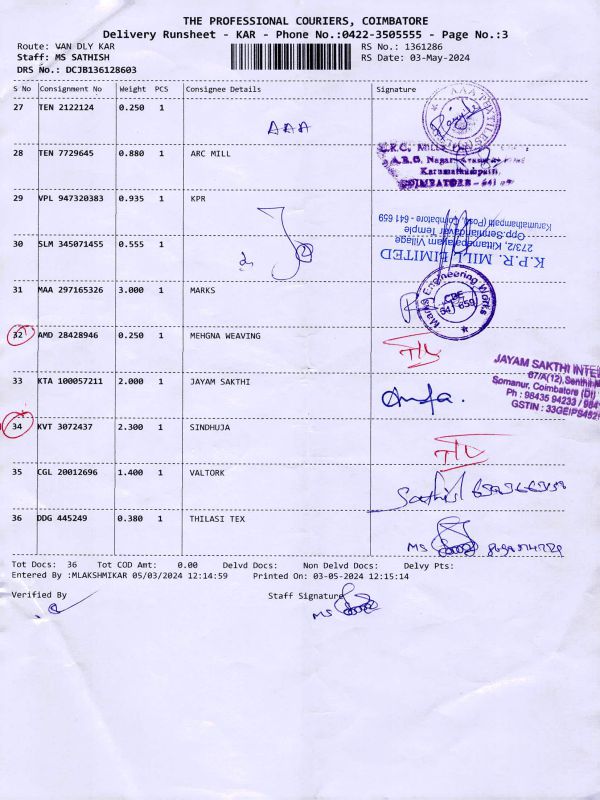 THE PROFESSIONAL COURIERS, COIMBATORE
Delivery Runsheet - KAR - Phone No.:0422-3505555 - Page No.:3
Route: WAN DLY KAR RS No.: 1361286
Staff: MS SATHISH RS Date: 03-May-2024
DRS No.: DCJB136128603
S No Consignment No Weight PCS Consignee Details Signature
27 TEN 2122124 0.250 1
AAA
28 TEN 7729645 0.880 1 ARC MILL
A.R.C. Nagar
Karumathampatti,
COIMBATORE - 641
29 VPL 947320383 0.935 1 KPR
30 SLM 345071455 0.555 1
K.P.R. MILL LIMITED
273/2, Kittampalayam Village
Opp.Sennandavar Temple
Karumathampatti (Post) Coimbatore - 641 659
31 MAA 297165326 3.000 1 MARKS
Marks Engineering Works
CBE
641 659
32 AMD 28428946 0.250 1 MEHGNA WEAVING
33 KTA 100057211 2.000 1 JAYAM SAKTHI
JAYAM SAKTHI INTE
67/A(12), Senthil
Somanur, Coimbatore (Dt)
Ph : 98435 94233 / 984
GSTIN : 33GEIPS452
34 KVT 3072437 2.300 1 SINDHUJA
35 CGL 20012696 1.400 1 VALTORK
Sathish
36 DDG 445249 0.380 1 THILASI TEX
MS
Tot Docs: 36 Tot COD Amt: 0.00 Delvd Docs: Non Delvd Docs: Delvy Pts:
Entered By :MLAKSHMIKAR 05/03/2024 12:14:59 Printed On: 03-05-2024 12:15:14
Verified By Staff Signature
MS